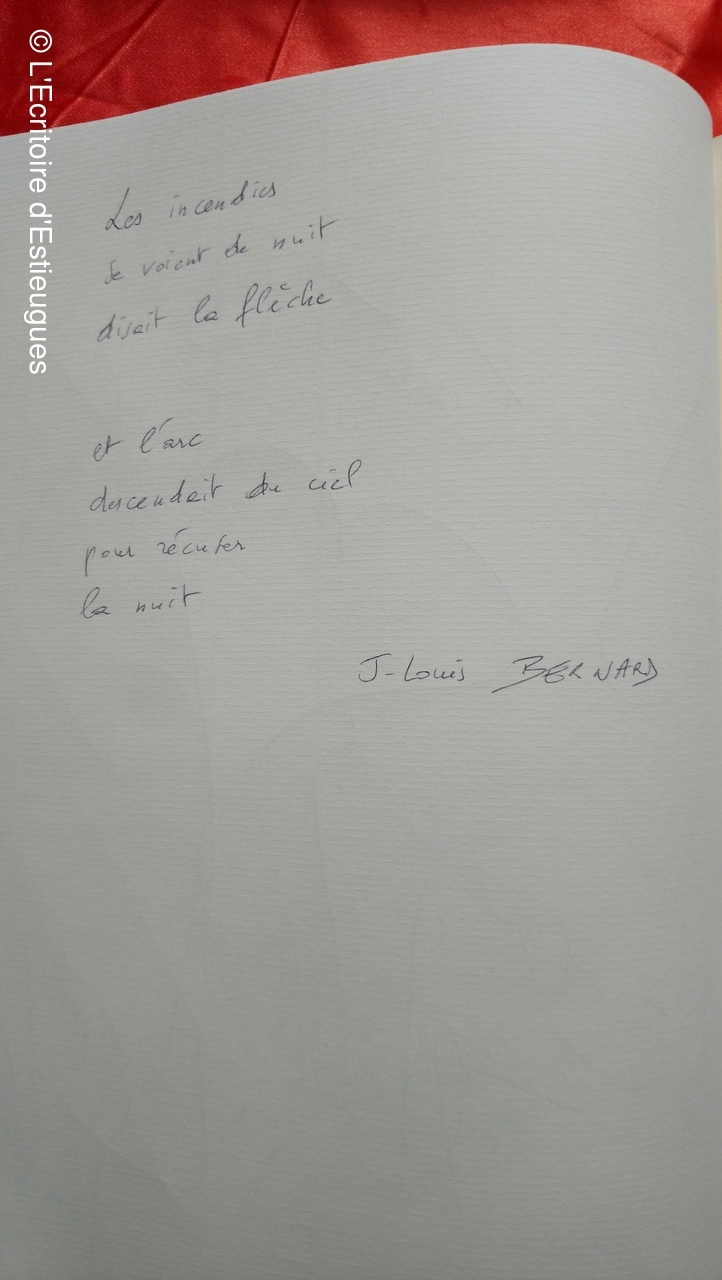 © L'Ecritoire d'Estieugues
Les incendies
se voient de nuit
disait la flèche
et l'arc
descendait du ciel
pour récuser
la nuit
J-Louis BERNARD